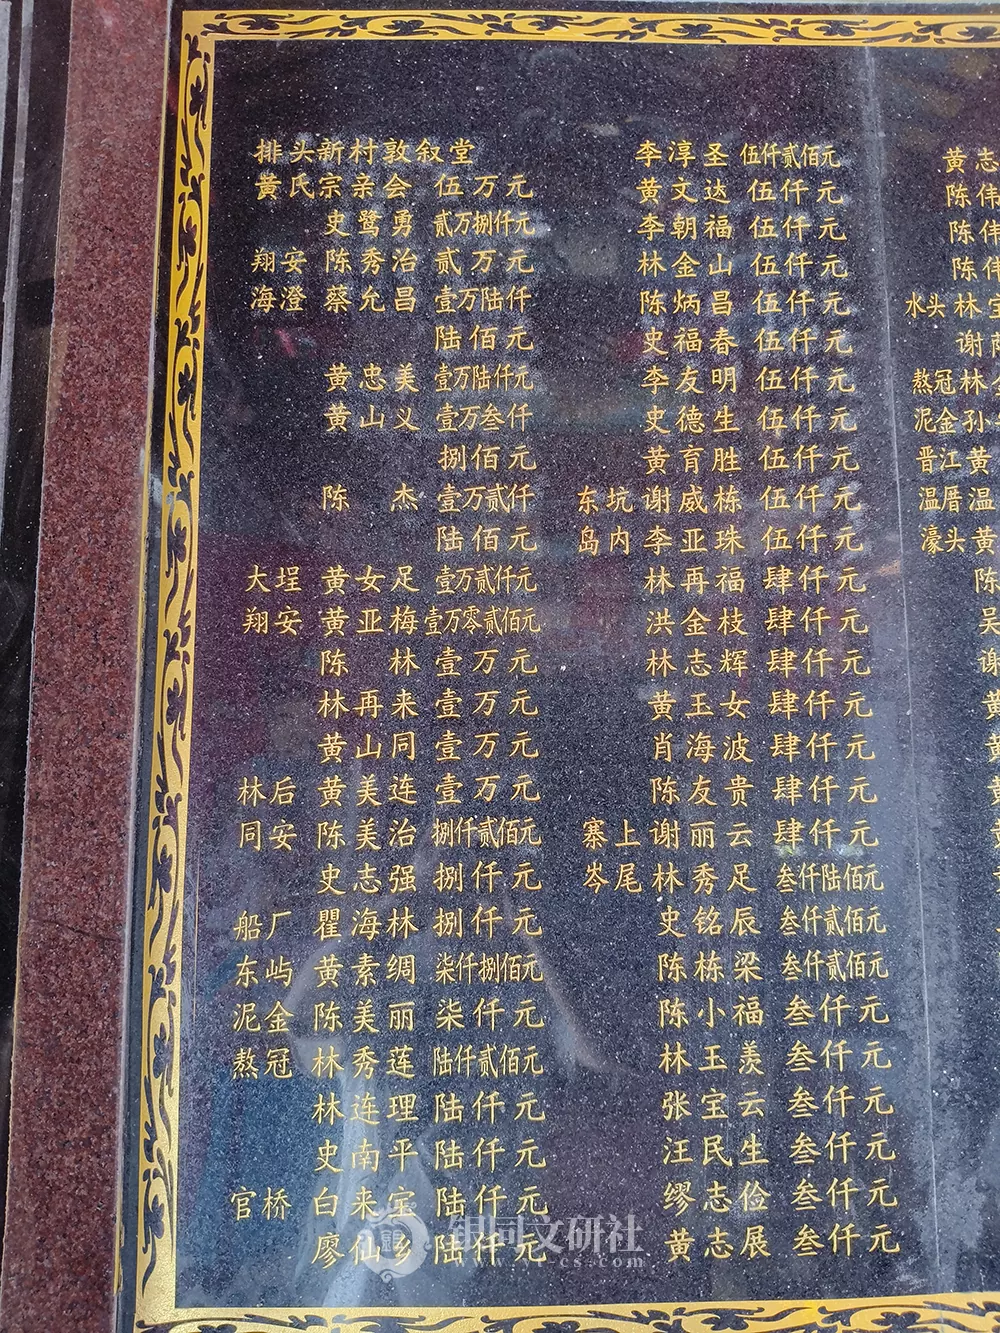 排头新村敦叙堂
黄氏宗亲会 伍万元
史鹭勇 贰万捌仟元
翔安 陈秀治 贰万元
海澄 蔡允昌 壹万陆仟
陆佰元
黄忠美 壹万陆仟元
黄山义 壹万叁仟
捌佰元
陈杰 壹万贰仟
陆佰元
大埕 黄女足 壹万贰仟元
翔安 黄亚梅 壹万零贰佰元
陈林 壹万元
林再来 壹万元
黄山同 壹万元
林后 黄美连 壹万元
同安 陈美治 捌仟贰佰元
史志强 捌仟元
船厂 瞿海林 捌仟元
东屿 黄素绸 柒仟捌佰元
泥金 陈美丽 柒仟元
熬冠 林秀莲 陆仟贰佰元
林连理 陆仟元
史南平 陆仟元
官桥 白来宝 陆仟元
廖仙乡 陆仟元
李淳圣 伍仟贰佰元
黄文达 伍仟元
李朝福 伍仟元
林金山 伍仟元
陈炳昌 伍仟元
史福春 伍仟元
李友明 伍仟元
史德生 伍仟元
黄育胜 伍仟元
东坑 谢威栋 伍仟元
岛内 李亚珠 伍仟元
林再福 肆仟元
洪金枝 肆仟元
林志辉 肆仟元
黄玉女 肆仟元
肖海波 肆仟元
陈友贵 肆仟元
寨上 谢丽云 肆仟元
岑尾 林秀足 叁仟陆佰元
史铭辰 叁仟贰佰元
陈栋梁 叁仟贰佰元
陈小福 叁仟元
林玉羡 叁仟元
张宝云 叁仟元
汪民生 叁仟元
缪志俭 叁仟元
黄志展 叁仟元
黄志
陈伟
陈伟
陈伟
水头 林宝
谢
熬冠 林
泥金 孙
晋江 黄
温厝 温
濠头 黄
陈
吴
谢
黄
银同文研社